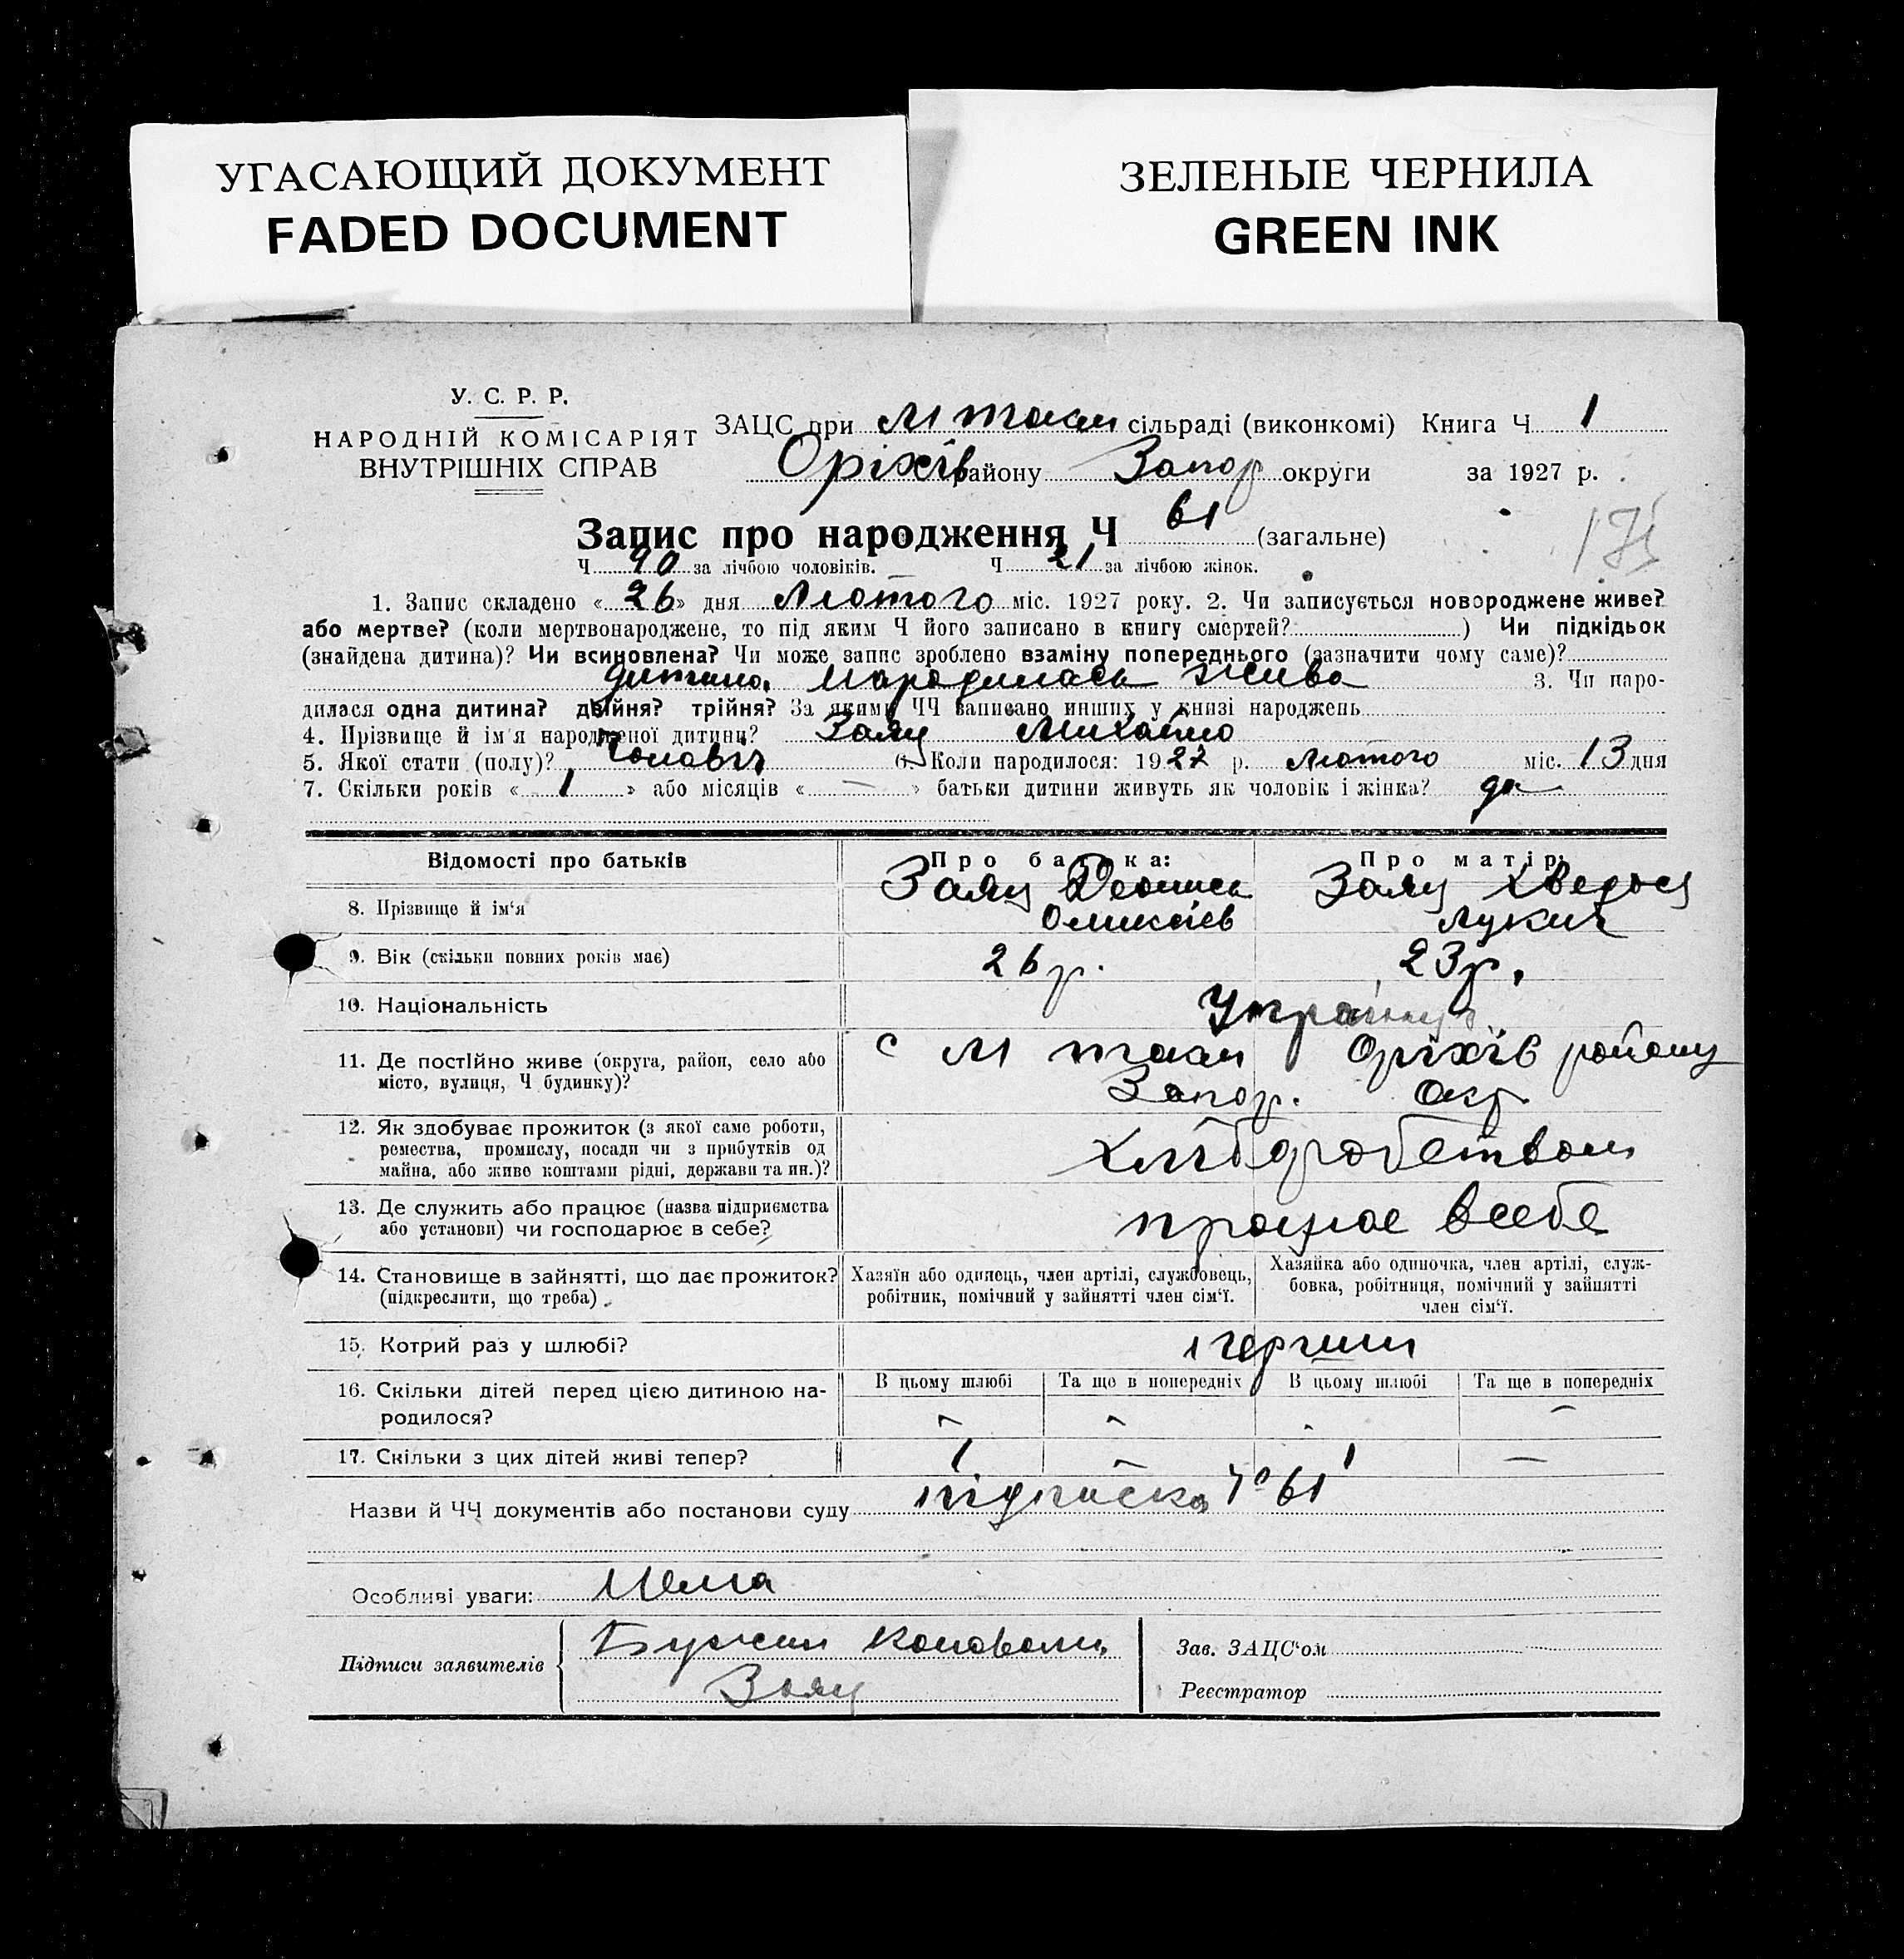 УГАСАЮЩИЙ ДОКУМЕНТ
FADED DOCUMENT
ЗЕЛЕНЫЕ ЧЕРНИЛА
GREEN INK
У. С. Р. Р.
НАРОДНІЙ КОМІСАРІЯТ
ВНУТРІШНІХ СПРАВ
ЗАЦС при М токм сільраді (виконкомі) Книга Ч 1
Оріхів району Запор округи за 1927 р.
Запис про народження Ч 61 (загальне)
175
Ч 40 за лічбою чоловіків. Ч 21 за лічбою жінок.
1. Запис складено « 26 » дня Лютого міс. 1927 року. 2. Чи записується новороджене живе?
або мертве? (коли мертвонароджене, то під яким Ч його записано в книгу смертей? ) Чи підкідьок
(знайдена дитина)? Чи всиновлена? Чи може запис зроблено взаміну попереднього (зазначити чому саме)?
дитина народилась жива 3. Чи наро-
дилася одна дитина? двійня? трійня? За якими ЧЧ записано инших у книзі народжень
4. Прізвище й ім'я народженої дитини? Заяц Михайло
5. Якої стати (полу)? Чоловіч 6. Коли народилося: 1927 р. лютого міс. 13 дня
7. Скільки років « 1 » або місяців « — » батьки дитини живуть як чоловік і жінка? да
Відомості про батьків Про батька: Про матір:
8. Прізвище й ім'я Заяц Денись Заяц Хведося
Олексіев Лукич
9. Вік (скільки повних років має) 26 р. 23 р.
10. Національність Украінці
11. Де постійно живе (округа, район, село або місто, вулиця, Ч будинку)? с М токм Оріхів району
Запор. Окр.
12. Як здобуває прожиток (з якої саме роботи,
ремества, промислу, посади чи з прибутків од
майна, або живе коштами рідні, держави та ин.)? Хлібробством
13. Де служить або працює (назва підприємства
або установи) чи господарює в себе? працює в себе
14. Становище в зайнятті, що дає прожиток?
(підкреслити, що треба)
Хазяїн або одинець, член артілі, службовець,
робітник, помічний у зайнятті член сім'ї.
Хазяйка або одиночка, член артілі, служ-
бовка, робітниця, помічний у зайнятті
член сім'ї.
15. Котрий раз у шлюбі? 1 перший
16. Скільки дітей перед цією дитиною на-
родилося?
В цьому шлюбі Та ще в попередніх В цьому шлюбі Та ще в попередніх
17. Скільки з цих дітей живі тепер? 1 — 1 —
Назви й ЧЧ документів або постанови суду підписка 61
Особливі уваги: Нема
Підписи заявителів
Заяц
Зав. ЗАЦС'ом
Реєстратор